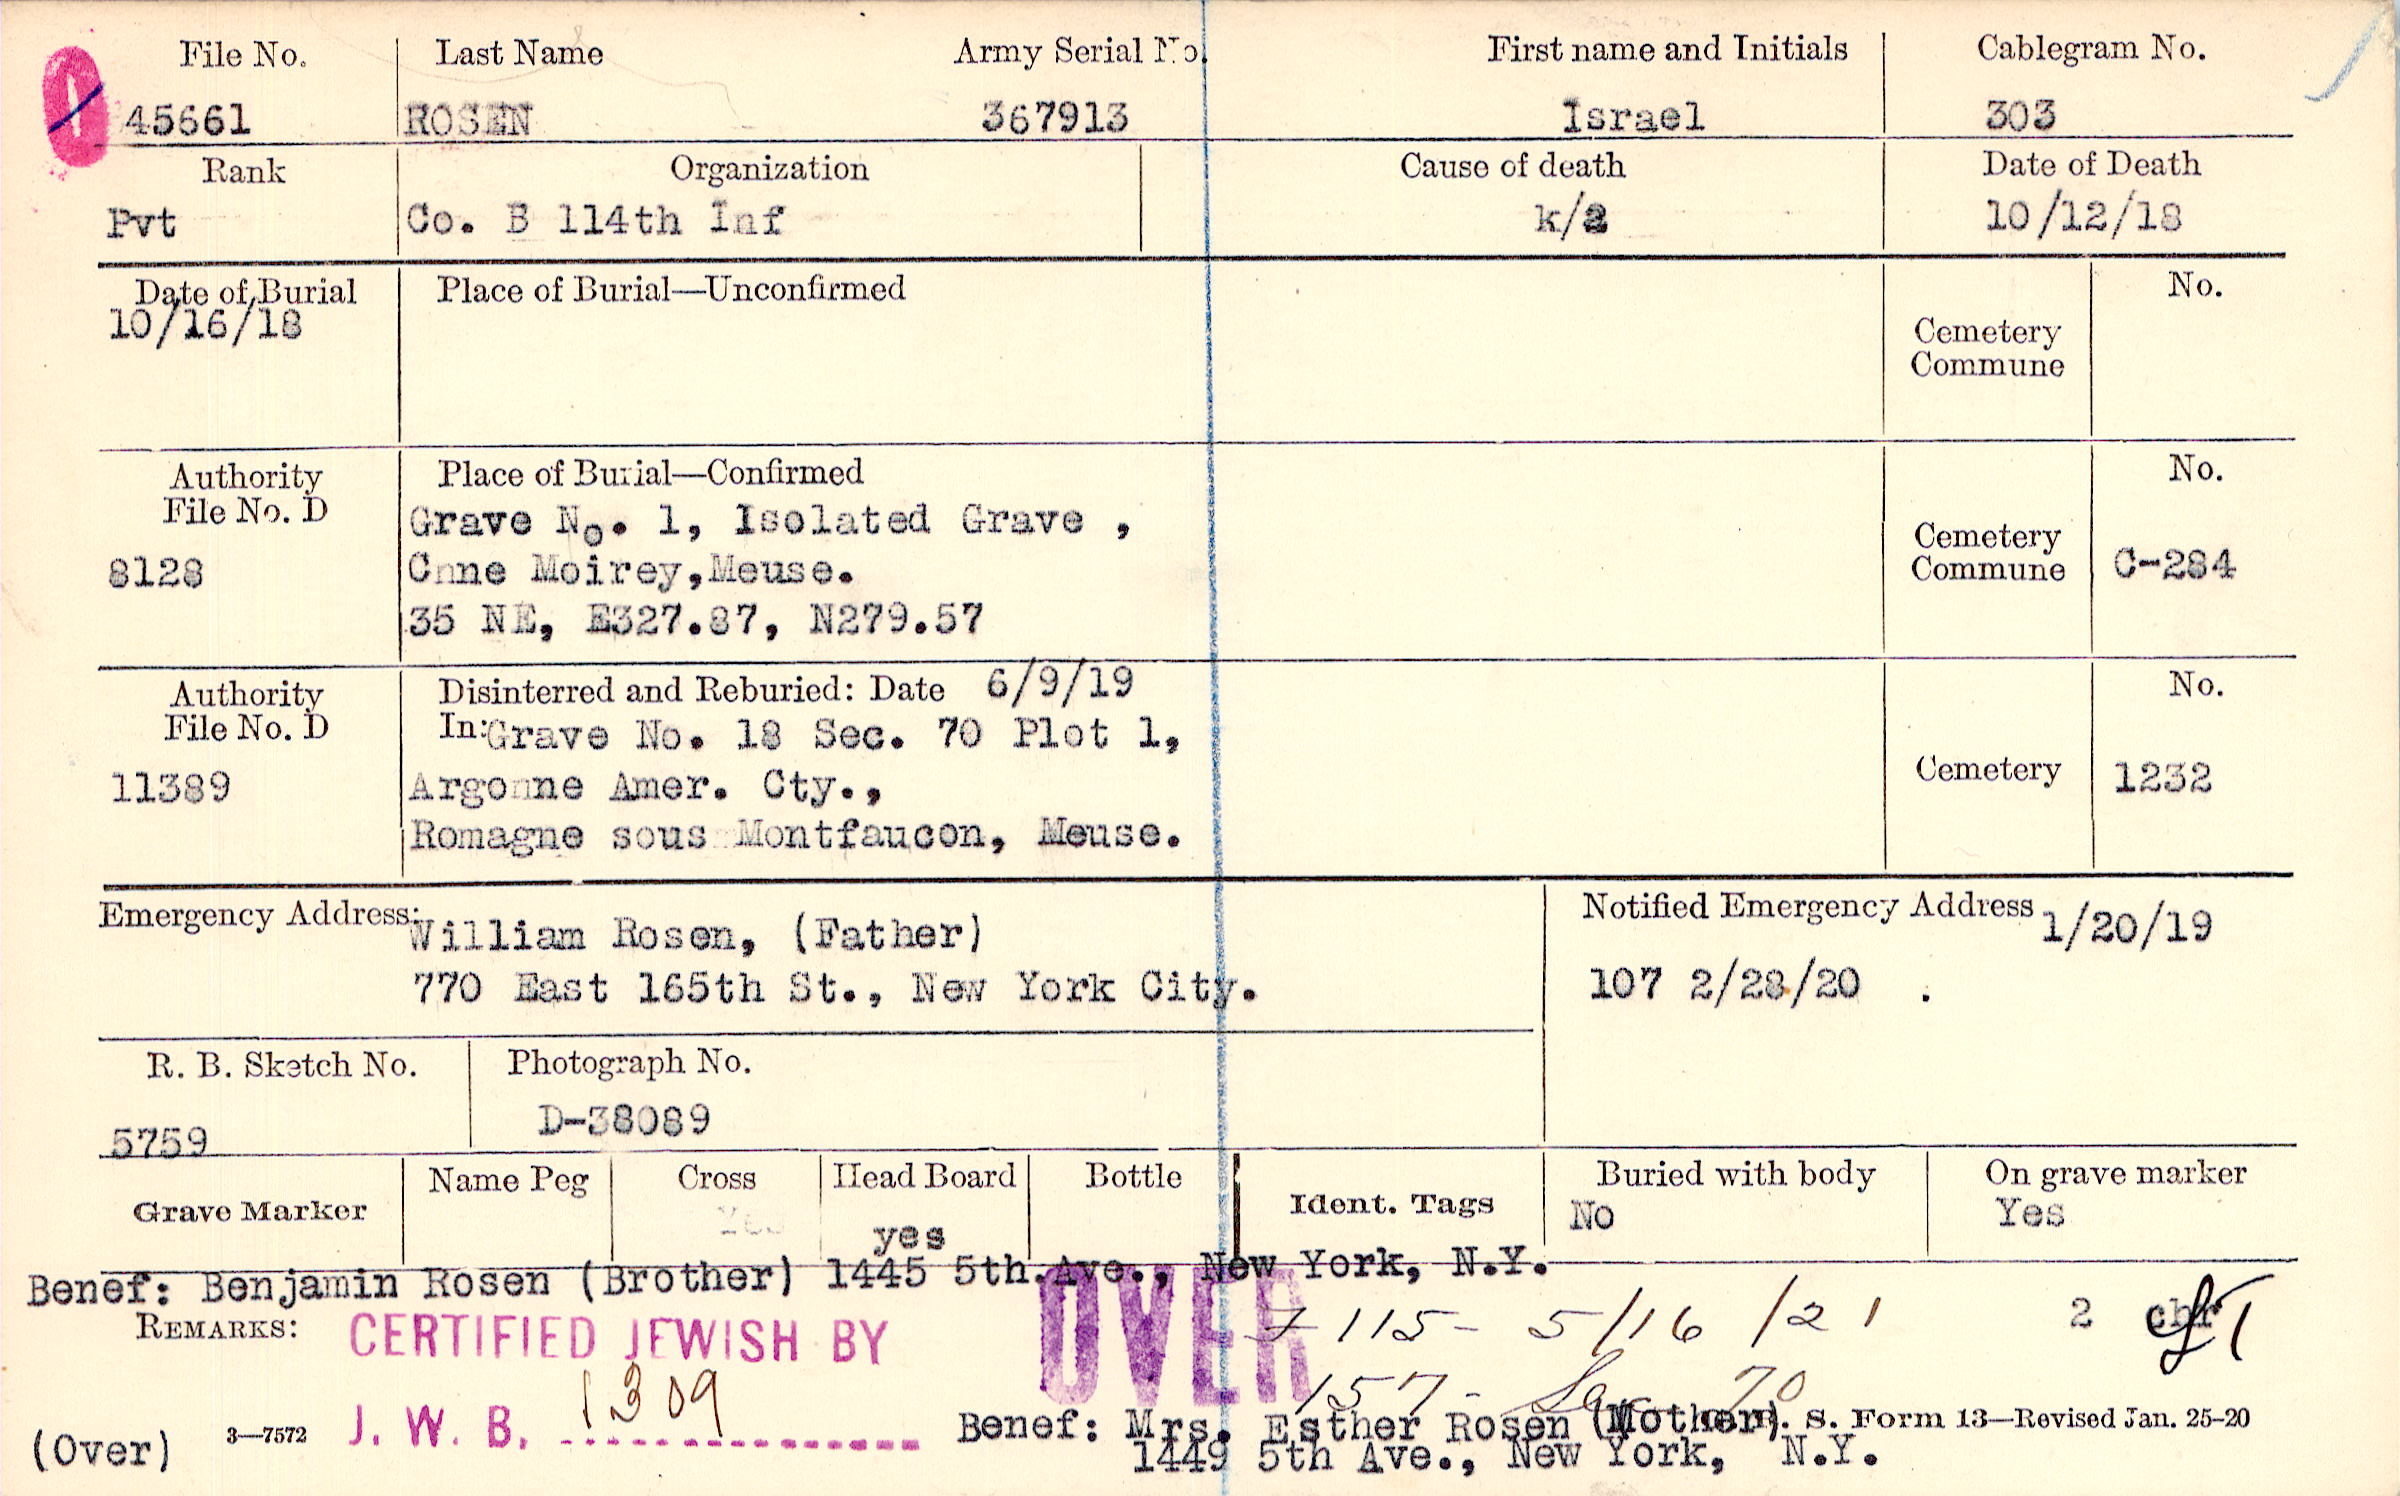 File No. Last Name Army Serial No. First name and Initials Cablegram No.
45661 ROSEN 367913 Israel 303
Rank Organization Cause of death Date of Death
Pvt Co. B 114th Inf k/a 10/12/18
Date of Burial Place of Burial—Unconfirmed No.
10/16/18
Cemetery
Commune
Authority Place of Burial—Confirmed No.
File No. D
Grave No. 1, Isolated Grave ,
Cemetery
8128 Cmne Moirey,Meuse. Commune C-284
35 NE, E327.87, N279.57
Authority Disinterred and Reburied: Date 6/9/19 No.
File No. D In:Grave No. 18 Sec. 70 Plot 1,
11389 Argonne Amer. Cty., Cemetery 1232
Romagne sous Montfaucon, Meuse.
Emergency Address: William Rosen, (Father) Notified Emergency Address 1/20/19
770 East 165th St., New York City. 107 2/28/20 .
R. B. Sketch No. Photograph No.
5759 D-38089
Grave Marker Name Peg Cross Head Board Bottle Ident. Tags Buried with body On grave marker
Yes yes No Yes
Benef: Benjamin Rosen (Brother) 1445 5th.Ave., New York, N.Y.
REMARKS: CERTIFIED JEWISH BY OVER 115- 5/16/21 2
J. W. B. 1309 157- 70
Benef: Mrs. Esther Rosen (Mother) S. Form 13—Revised Jan. 25-20
(Over) 3—7572 1449 5th Ave., New York, N.Y.